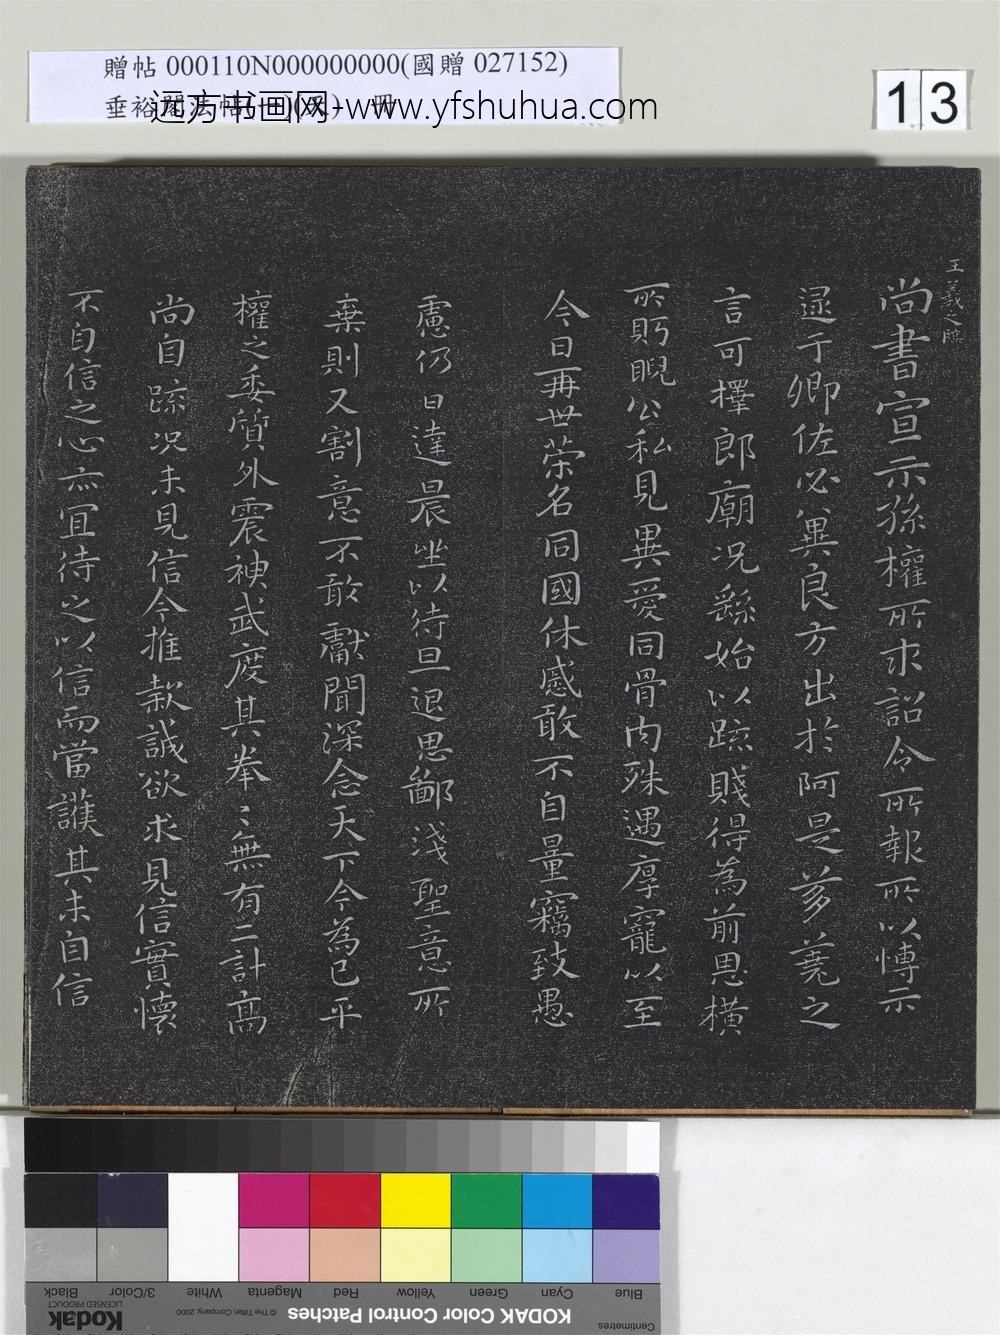 贈帖 000110N000000000(國贈 027152)
远方书画网-www.yfshuhua.com
13
王羲之臨
尚書宣示孫權所求詔令所報所以博示
逮于卿佐必冀良方出於阿是芻蕘之
言可擇郎廟況繇始以疏賤得為前恩橫
所䀣睨公私見異愛同骨肉殊遇厚寵以至
今日再世榮名同國休慼敢不自量竊致愚
慮仍日達晨坐以待旦退思鄙淺聖意所
棄則又割意不敢獻聞深念天下今為已平
權之委質外震神武度其拳〻無有二計高
尚自疏況未見信今推款誠欲求見信實懷
不自信之心亦宜待之以信而當護其未自信
Blue
Cyan
Green
Yellow
Red
Magenta
White
3/Color
Black
Centimetres
KODAK Color Control Patches
© The Tiffen Company, 2000
Kodak
LICENSED PRODUCT